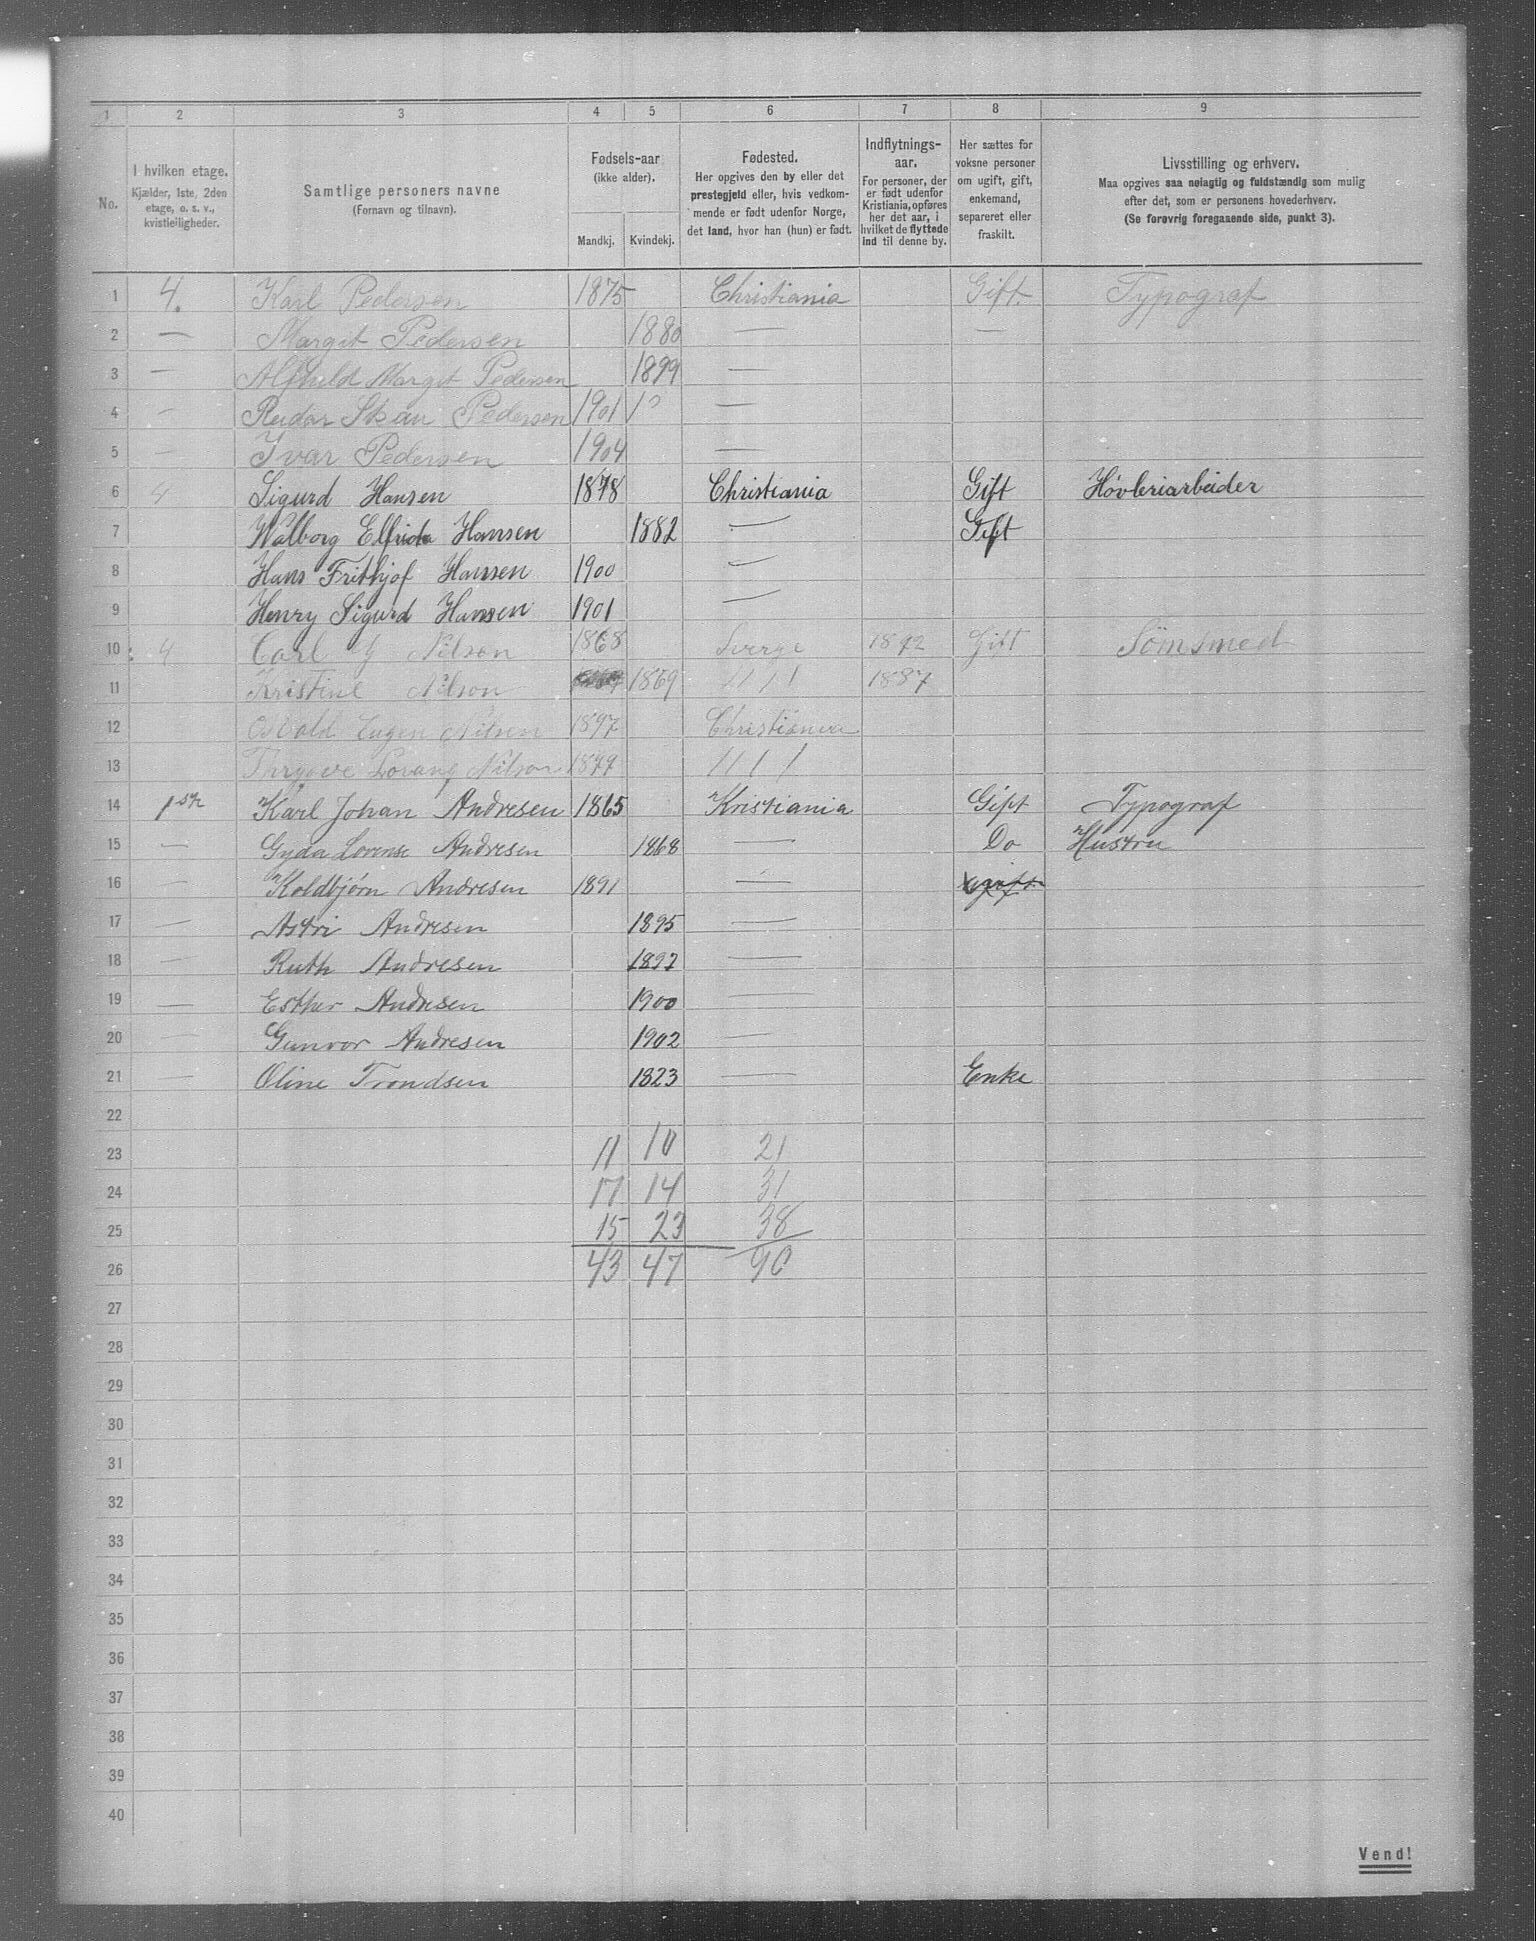 1 2 3 4 5 6 7 8 9
No.
I hvilken etage.
Kjælder, 1ste, 2den
etage, o. s. v.,
kvistleiligheder.
Samtlige personers navne
(Fornavn og tilnavn).
Fødsels-aar
(ikke alder).
Mandkj. Kvindekj.
Fødested.
Her opgives den by eller det
prestegjeld eller, hvis vedkom-
mende er født udenfor Norge,
det land, hvor han (hun) er født.
Indflytnings-
aar.
For personer, der
er født udenfor
Kristiania, opføres
her det aar, i
hvilket de flyttede
ind til denne by.
Her sættes for
voksne personer
om ugift, gift,
enkemand,
separeret eller
fraskilt.
Livsstilling og erhverv.
Maa opgives saa nøiagtig og fuldstændig som mulig
efter det, som er personens hovederhverv.
(Se forøvrig foregaaende side, punkt 3).
1 4. Karl Pedersen 1875 Christiania Gift. Typograf
2 — Margit Pedersen 1880 — —
3 — Alfhild Margit Pedersen 1899 —
4 - Reidar Pedersen 1901 —
5 - Ivar Pedersen 1904 —
6 4 Sigurd Hansen 1878 Christiania Gift Høvleriarbeider
7 Walborg Elfrida Hansen 1882 — Gift
8 Hans Frithjof Hansen 1900 —
9 Henry Sigurd Hansen 1901 —
10 4 Carl J Nilson 1868 Sverge 1892 Gift Sömsmed
11 Kristine Nilson 1869 1 1 1 1 1887
12 Osvald Eugen Nilsen 1897 Christiania
13 Thrygve Nilson 1899 1 1 1 1
14 1ste Karl Johan Andresen 1865 Kristiania Gift Typograf
15 — Gyda Lovense Andresen 1868 — Do Hustru
16 — Koldbjørn Andresen 1891 — ugift
17 — Astri Andresen 1895 —
18 — Ruth Andresen 1897 —
19 — Esther Andresen 1900 —
20 — Gunvor Andresen 1902 —
21 — Oline Trondsen 1823 — Enke
22
23 11 10 21
24 17 14 31
25 15 23 38
26 43 47 90
27
28
29
30
31
32
33
34
35
36
37
38
39
40
Vend!